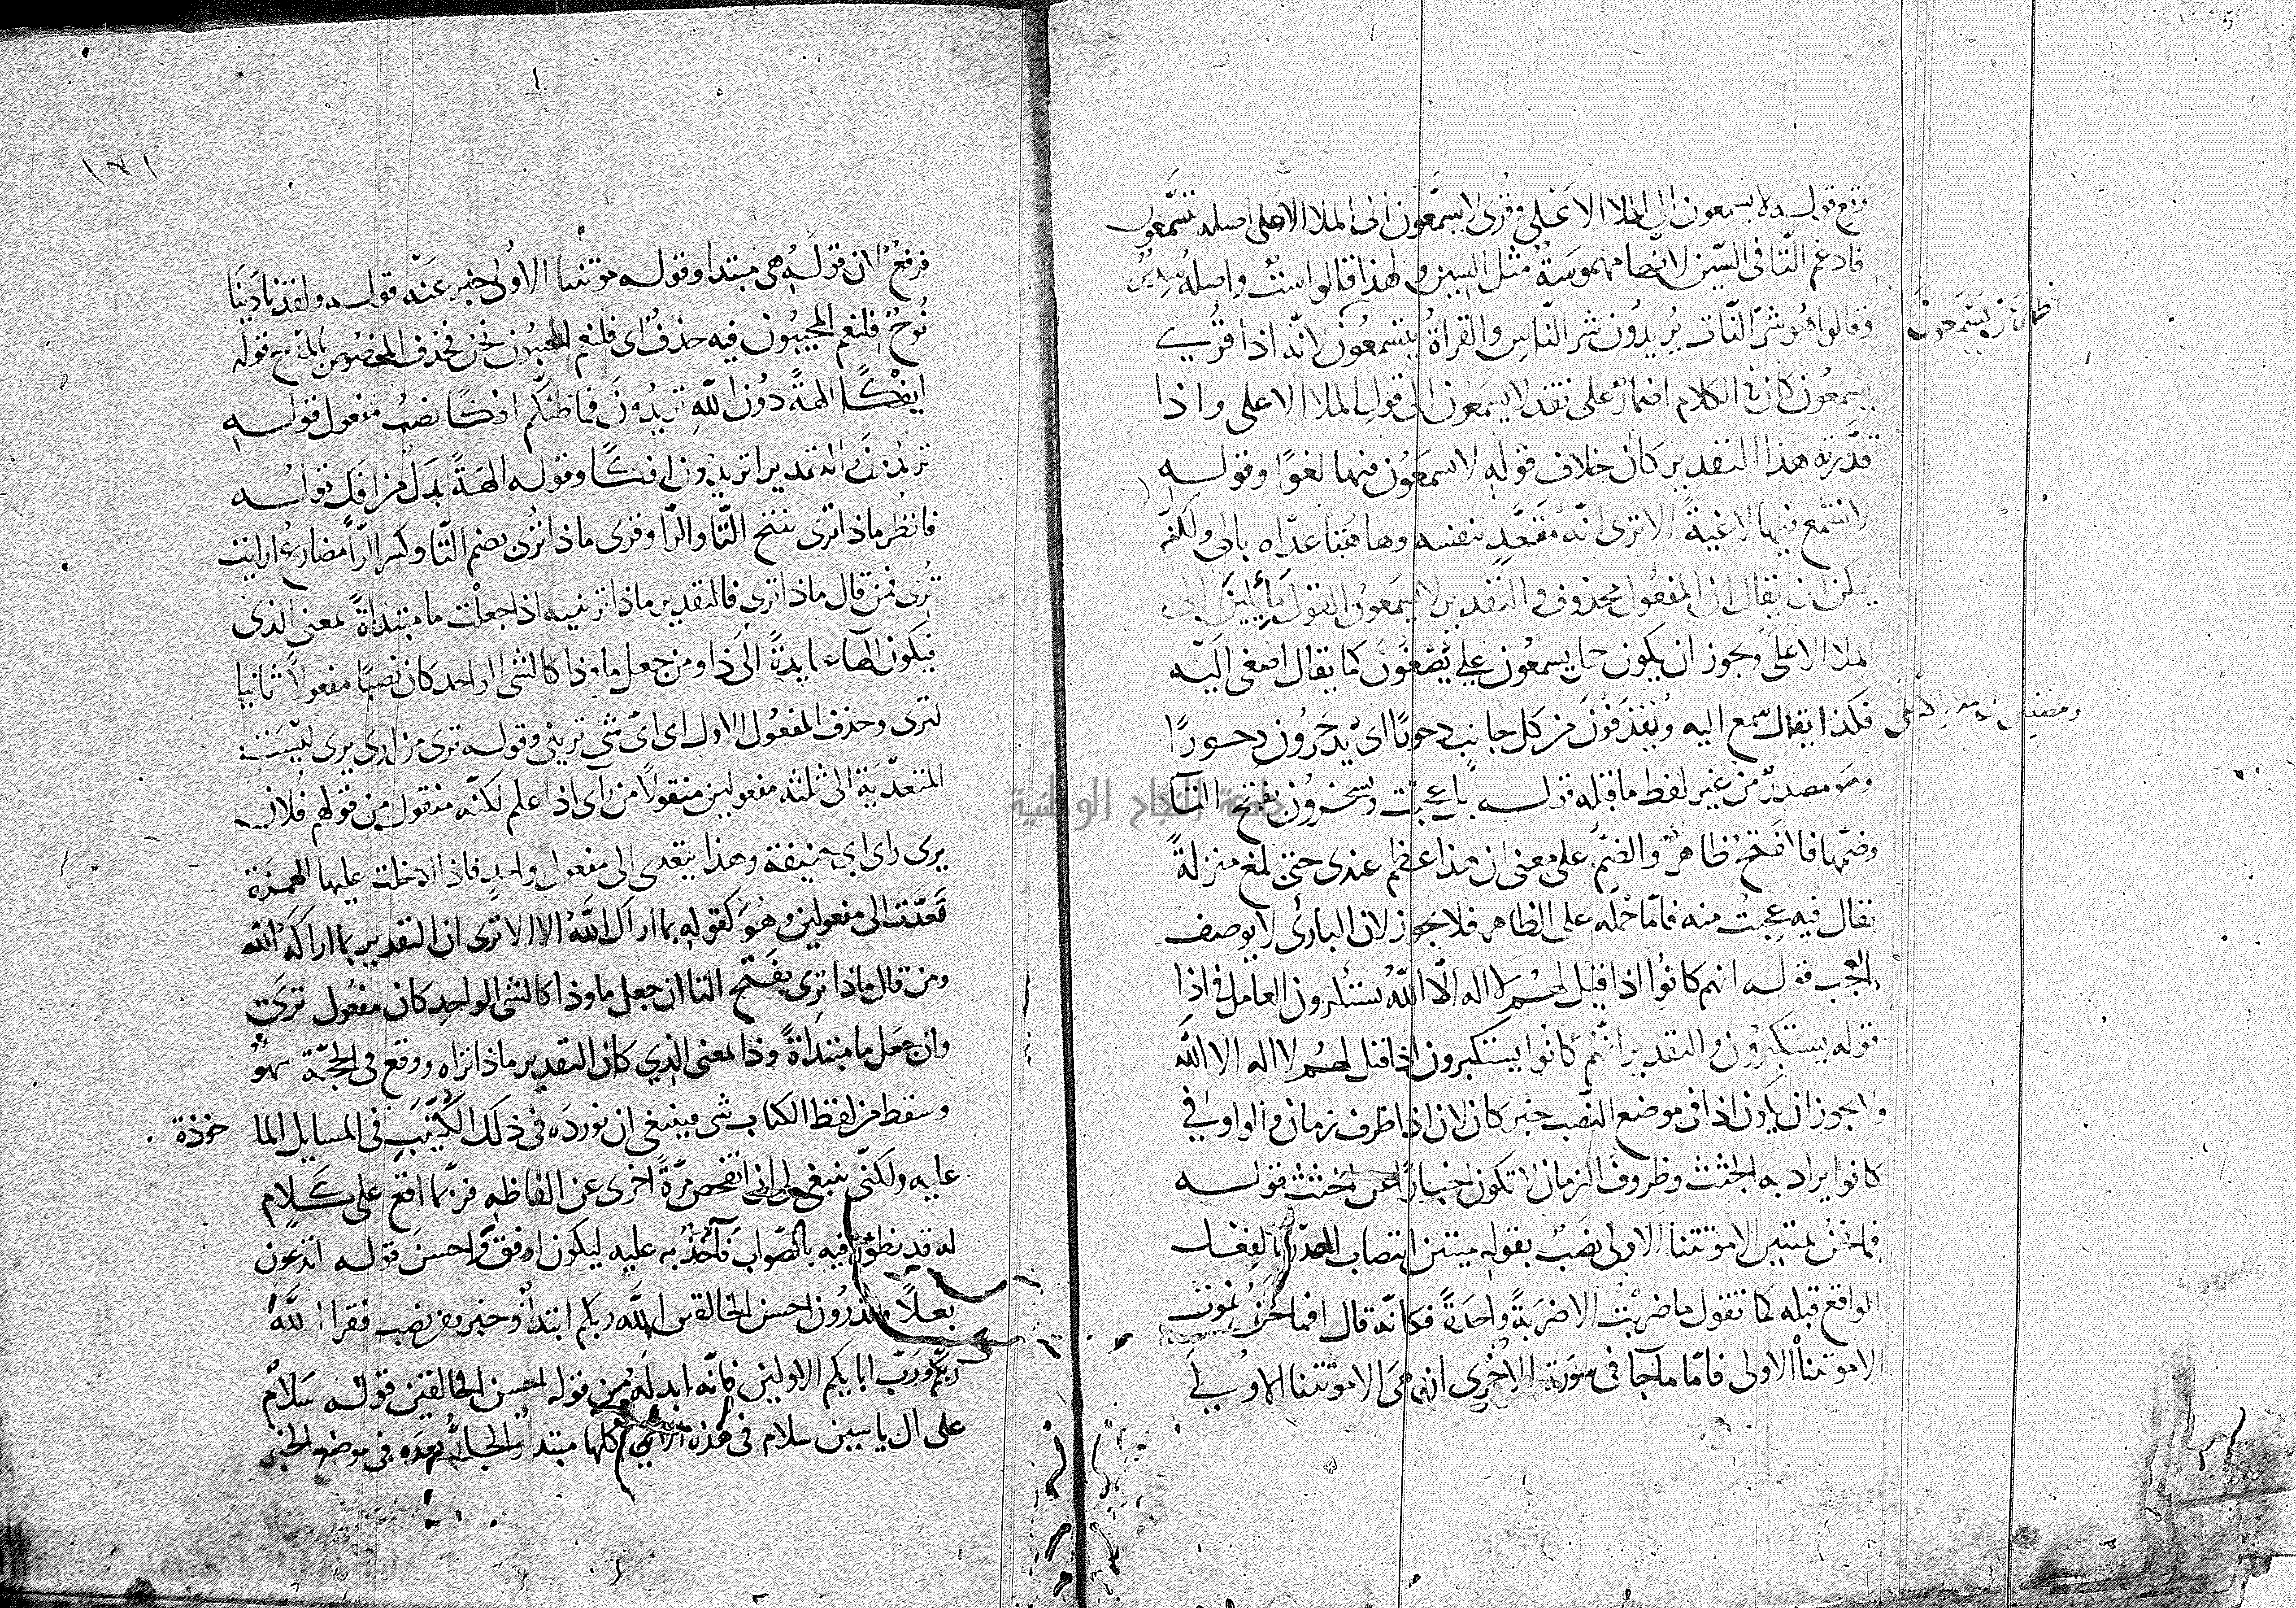 وقع قوله لا يسمعون الى الملا الاعلى وقرى لا يسمعون الى الملا الاعلى اصله يتسمعون
فادغم التا في السين لانها مهموسة مثل السين ولهذا قالوا ست واصله سدس
وقالوا هو شر النات يريدون شر الناس والقراة يتسمعون لانه اذا قرى
يسمعون كان في الكلام على تقد لا يسمعون الى قول الملا الاعلى واذا
قدرته هذا التقدير كان خلاف قوله لا يسمعون فيها لغوا وقوله
لا تسمع فيها لاغية الا ترى انه متعد بنفسه وها هنا عداه بالى ولكنه
يمكن ان يقال ان المفعول محذوف والتقدير لا يسمعون القول مائلين الى
الملا الاعلى ويجوز ان يكون حمل يسمعون على يصغون كما يقال اصغى اليه
فكذا يقال سمع اليه ويقذفون من كل جانب دحورا اى يدحرون دحورا
وهو مصدر من غير لفظ ما قبله قوله بل عجبت ويسخرون بفتح التا
وضمها فالفتح ظاهر والضم على معنى ان هذا عظم عندى حتى بلغ منزلة
يقال فيه عجبت منه فاما حمله على الظاهر فلا يجوز لان البارى لا يوصف
بالعجب قوله انهم كانوا اذا قيل لهم لا اله الا الله يستكبرون العامل في اذا
قوله يستكبرون والتقدير انهم كانوا يستكبرون اذا قيل لهم لا اله الا الله
ولا يجوز ان يكون اذا في موضع النصب خبر كان لان اذا ظرف زمان والواو في
كانوا يراد به الجثث وظروف الزمان لا تكون اخبارا عن الجثث قوله
فما نحن بميتين الا موتتنا الاولى نصب بقوله ميتين انتصاب المصدر بالفعل
الواقع قبله كما تقول ما ضربت الا ضربة واحدة فكانه قال افما نحن نموت
الا موتتنا الاولى فاما ما جا في سورة الاخرى ان هى الا موتتنا الاولى
ومصغين الى الملا الاعلى
١٧١
فرفع لان قوله هى مبتدا وقوله موتتنا الاولى خبر عنه قوله ولقد نادينا
نوح فلنعم المجيبون فيه حذف اى فلنعم المجيبون نحن فحذف المخصوص بالمدح قوله
ايفكا الهة دون الله تريدون فما ظنكم افكا نصب مفعول قوله
تريدون والتقدير اتريدون افكا وقوله الهة بدل من افك قوله
فانظر ماذا ترى بفتح التا والرا وقرى ماذا ترى بضم التا وكسر الرا مضارع اريت
ترى فمن قال ماذا ترى فالتقدير ماذا ترينيه اذا جعلت ما مبتداة بمعنى الذى
فيكون الهاء عايدة الى ذا ومن جعل ما وذا كالشى الواحد كان نصبا مفعولا ثانيا
لترى وحذف المفعول الاول اى اى شى ترينى وقوله ترى من ارى يرى ليست
المتعدية الى ثلثه مفعولين منقولا من راى اذا علم لكنه منقول من قولهم فلان
يرى راى ابى حنيفة وهذا يتعدى الى مفعول واحد فاذا ادخلت عليها الهمزة
تعدت الى مفعولين وهو كقوله بما اراك الله الا ترى ان التقدير بما اراكه الله
ومن قال ماذا ترى بفتح التا ان جعل ما وذا كالشى الواحد كان مفعول ترى
وان جعل ما مبتداة وذا بمعنى الذي كان التقدير ماذا تراه ووقع في الحجة سهو
وسقط من لفظ الكتاب شى فينبغى ان نورده في ذلك الكتيب في المسايل الماخوذة
عليه ولكنى ينبغى لى ان اتفحص مرة اخرى عن الفاظه فربما اقع على كلام
له قد نطق فيه بالصواب فآخذ به عليه ليكون اوفق واحسن قوله اتدعون
بعلا وتذرون احسن الخالقين الله ربكم ابتدا وخبر ومن نصب فقرا الله
ربكم ورب ابايكم الاولين فانه ابدله من قوله احسن الخالقين قوله سلام
على ال ياسين سلام في هذه الآي كلها مبتدا والجار بعده في موضع الخبر
جامعة النجاح الوطنية